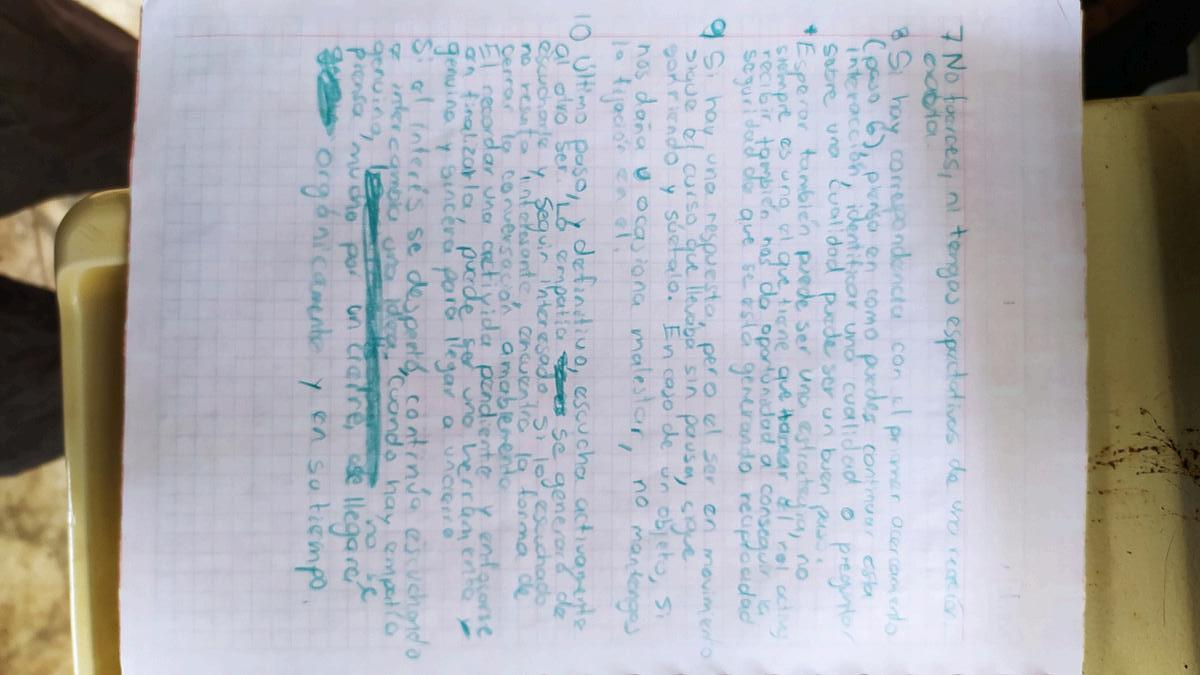 7 No forces, ni tengas espectativas de una reacción
exacta.
8 Si hay correspondencia con el primer acercamiento
(paso 6), piensa en como puedes continuar esta
interacción, identificar una cualidad o preguntar
sobre una cualidad puede ser un buen paso.
* Esperar también puede ser una estrategia, no
siempre es uno el que tiene que tomar el rol activo
recibir también nos da oportunidad a conseguir la
seguridad de que se está generando reciprocidad
9 Si hay una respuesta, pero el ser en movimiento
sigue el curso que llevaba sin pausa, sigue
sonriendo y súeltalo. En caso de un objeto, si
nos daña u ocasiona malestar, no mantengas
la fijación en el.
10 Último paso, y definitivo, escucha activamente
al otro ser. La empatía se generará de
escucharle y seguir interesado. Si lo escuchado
no resulta interesante, encuentra la forma de
cerrar la conversación amablemente
El recordar una actividad pendiente y enfocarse
en finalizarla, puede ser una herramienta
genuina y sincera para llegar a un cierre
Si el interés se despertó, continúa escuchando
e intercambia una idea, cuando hay empatía
genuina, no se
piensa mucho por un cierre, llegará
orgánicamente y en su tiempo.